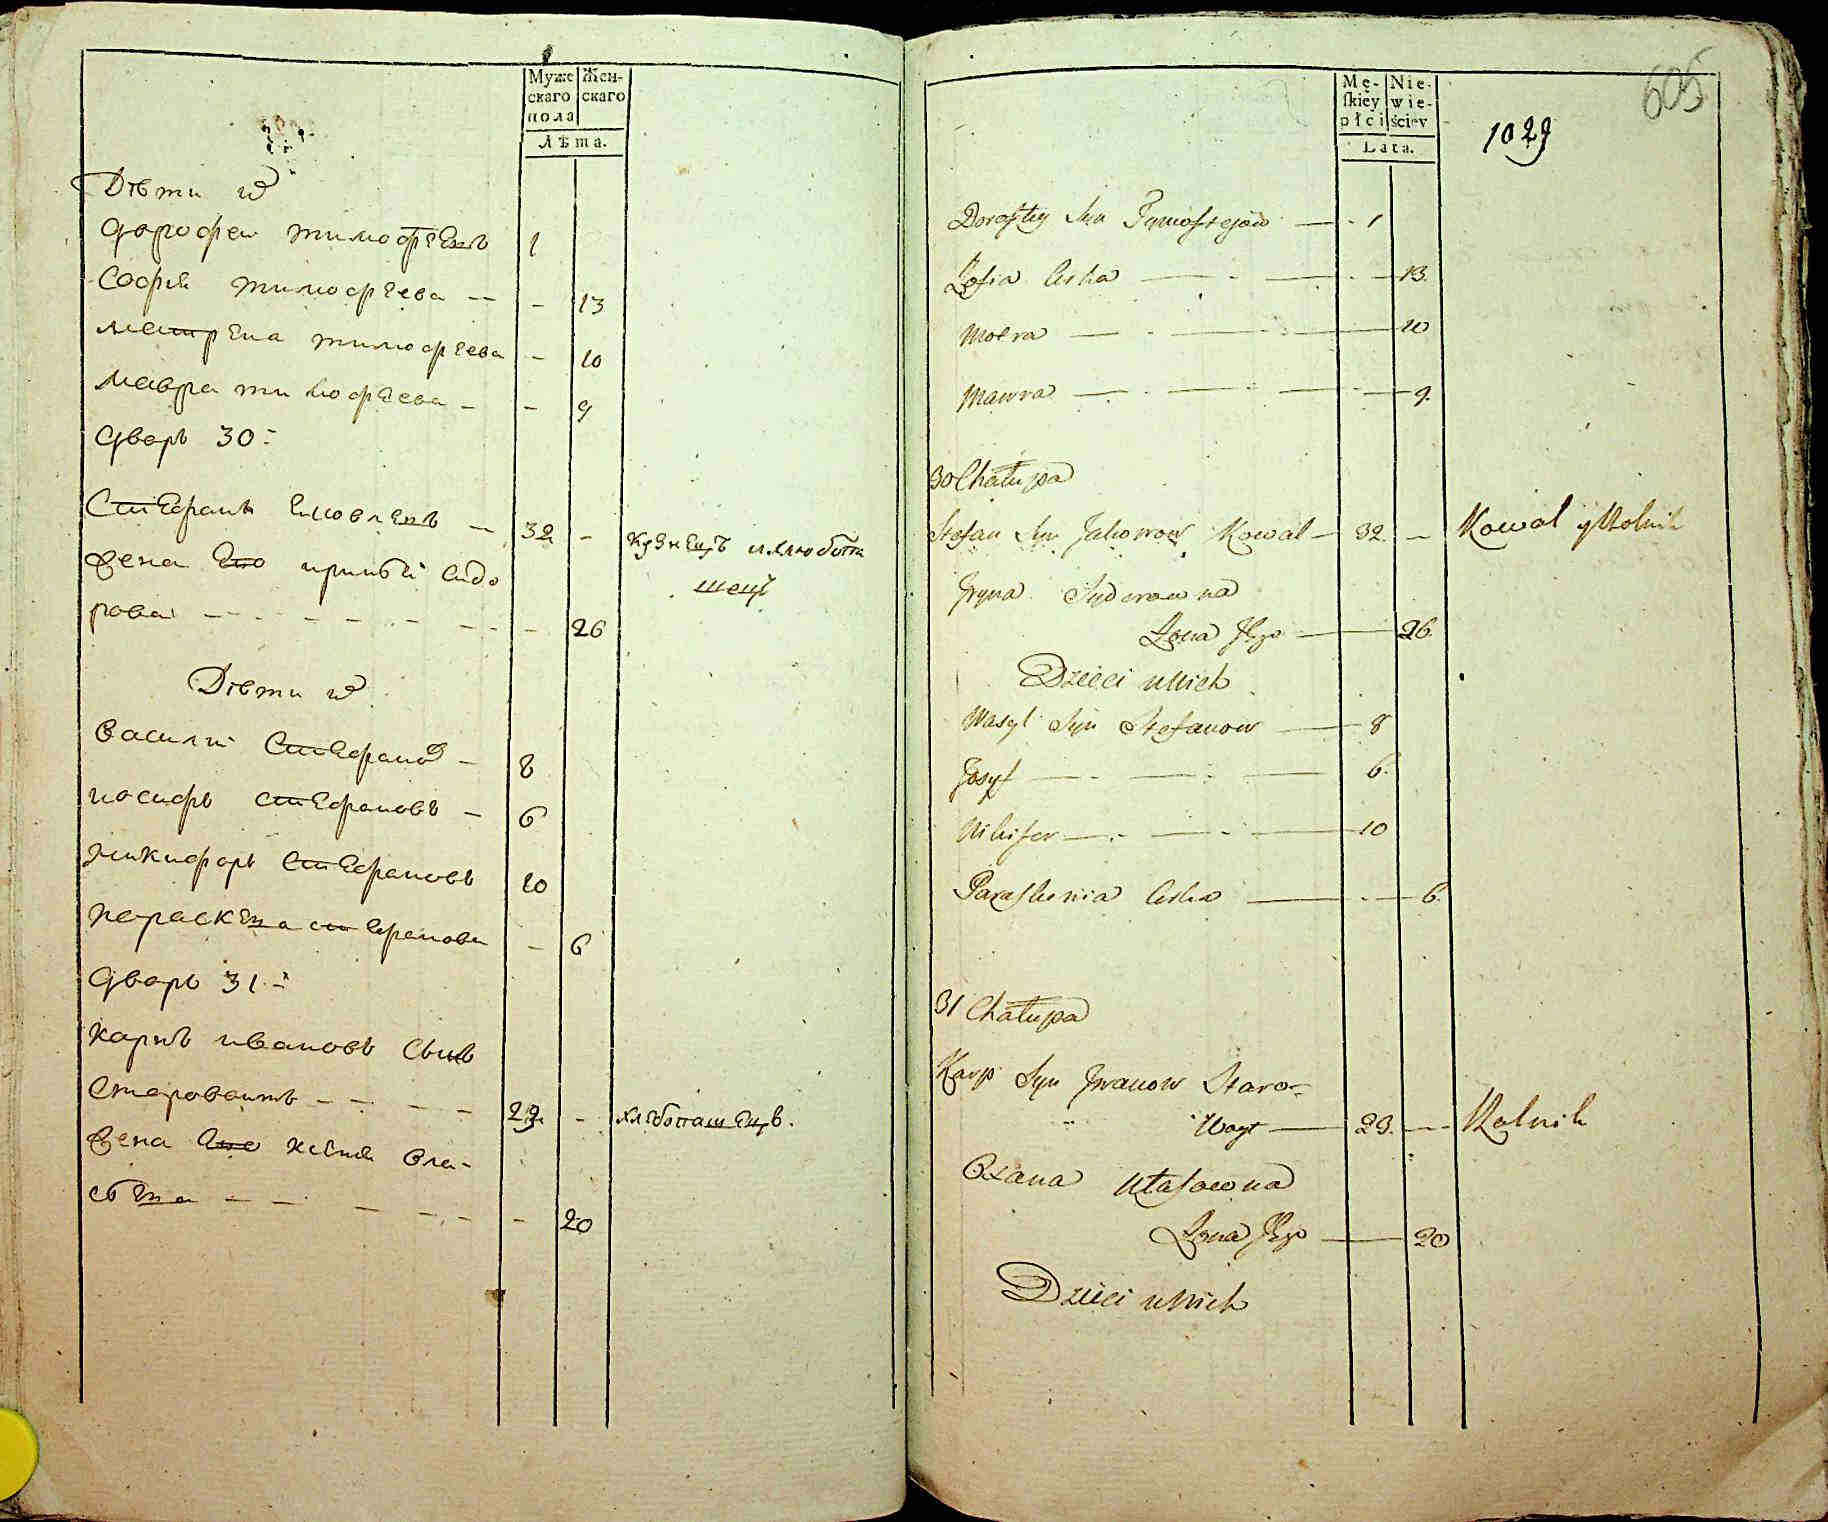 Муже
скаго
пола
Жен-
скаго
Лѣта.
Дѣти
дорофеи тимофѣевъ 1
София тимофѣева - 13
матрена тимофѣева - 10
мавра тимофѣева - 9
дворъ 30
Стефанъ яковлевъ 32 -
жена его Сидо
рова - 26
Дѣти
василий Стефанов 8
иосифъ стефановъ 6
никифоръ Стефановъ 10
параскева стефанова - 6
дворъ 31
карпъ ивановъ сынъ
Старовоитъ 29 - хлѣбопашецъ.
жена его Вла-
сова - 20
605
1029
Mę-
skiey
płci
Nie-
wie-
ściey
Lata.
Syn 1
Zofia Curka 13
10
Mawra 9.
30 Chałupa
Stefan Syn Jakowow Kowal 32. Kowal y Rolnik
Iryna Syderowna
Żona Jego 26.
Dzieci u Nich
Wasyl Syn Stefanow 8
Josyf 6.
Nikifor 10
Curka 6
31 Chałupa
Karp Syn Iwanow Staro-
Woyt 29. Rolnik
Oxana Własowna
Żona Jego 20
Dzieci u Nich